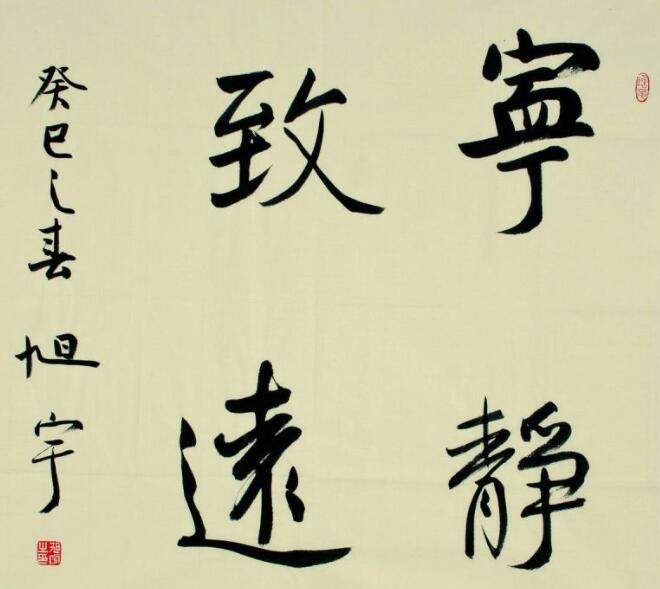 寧靜
致遠
癸巳之春 旭宇